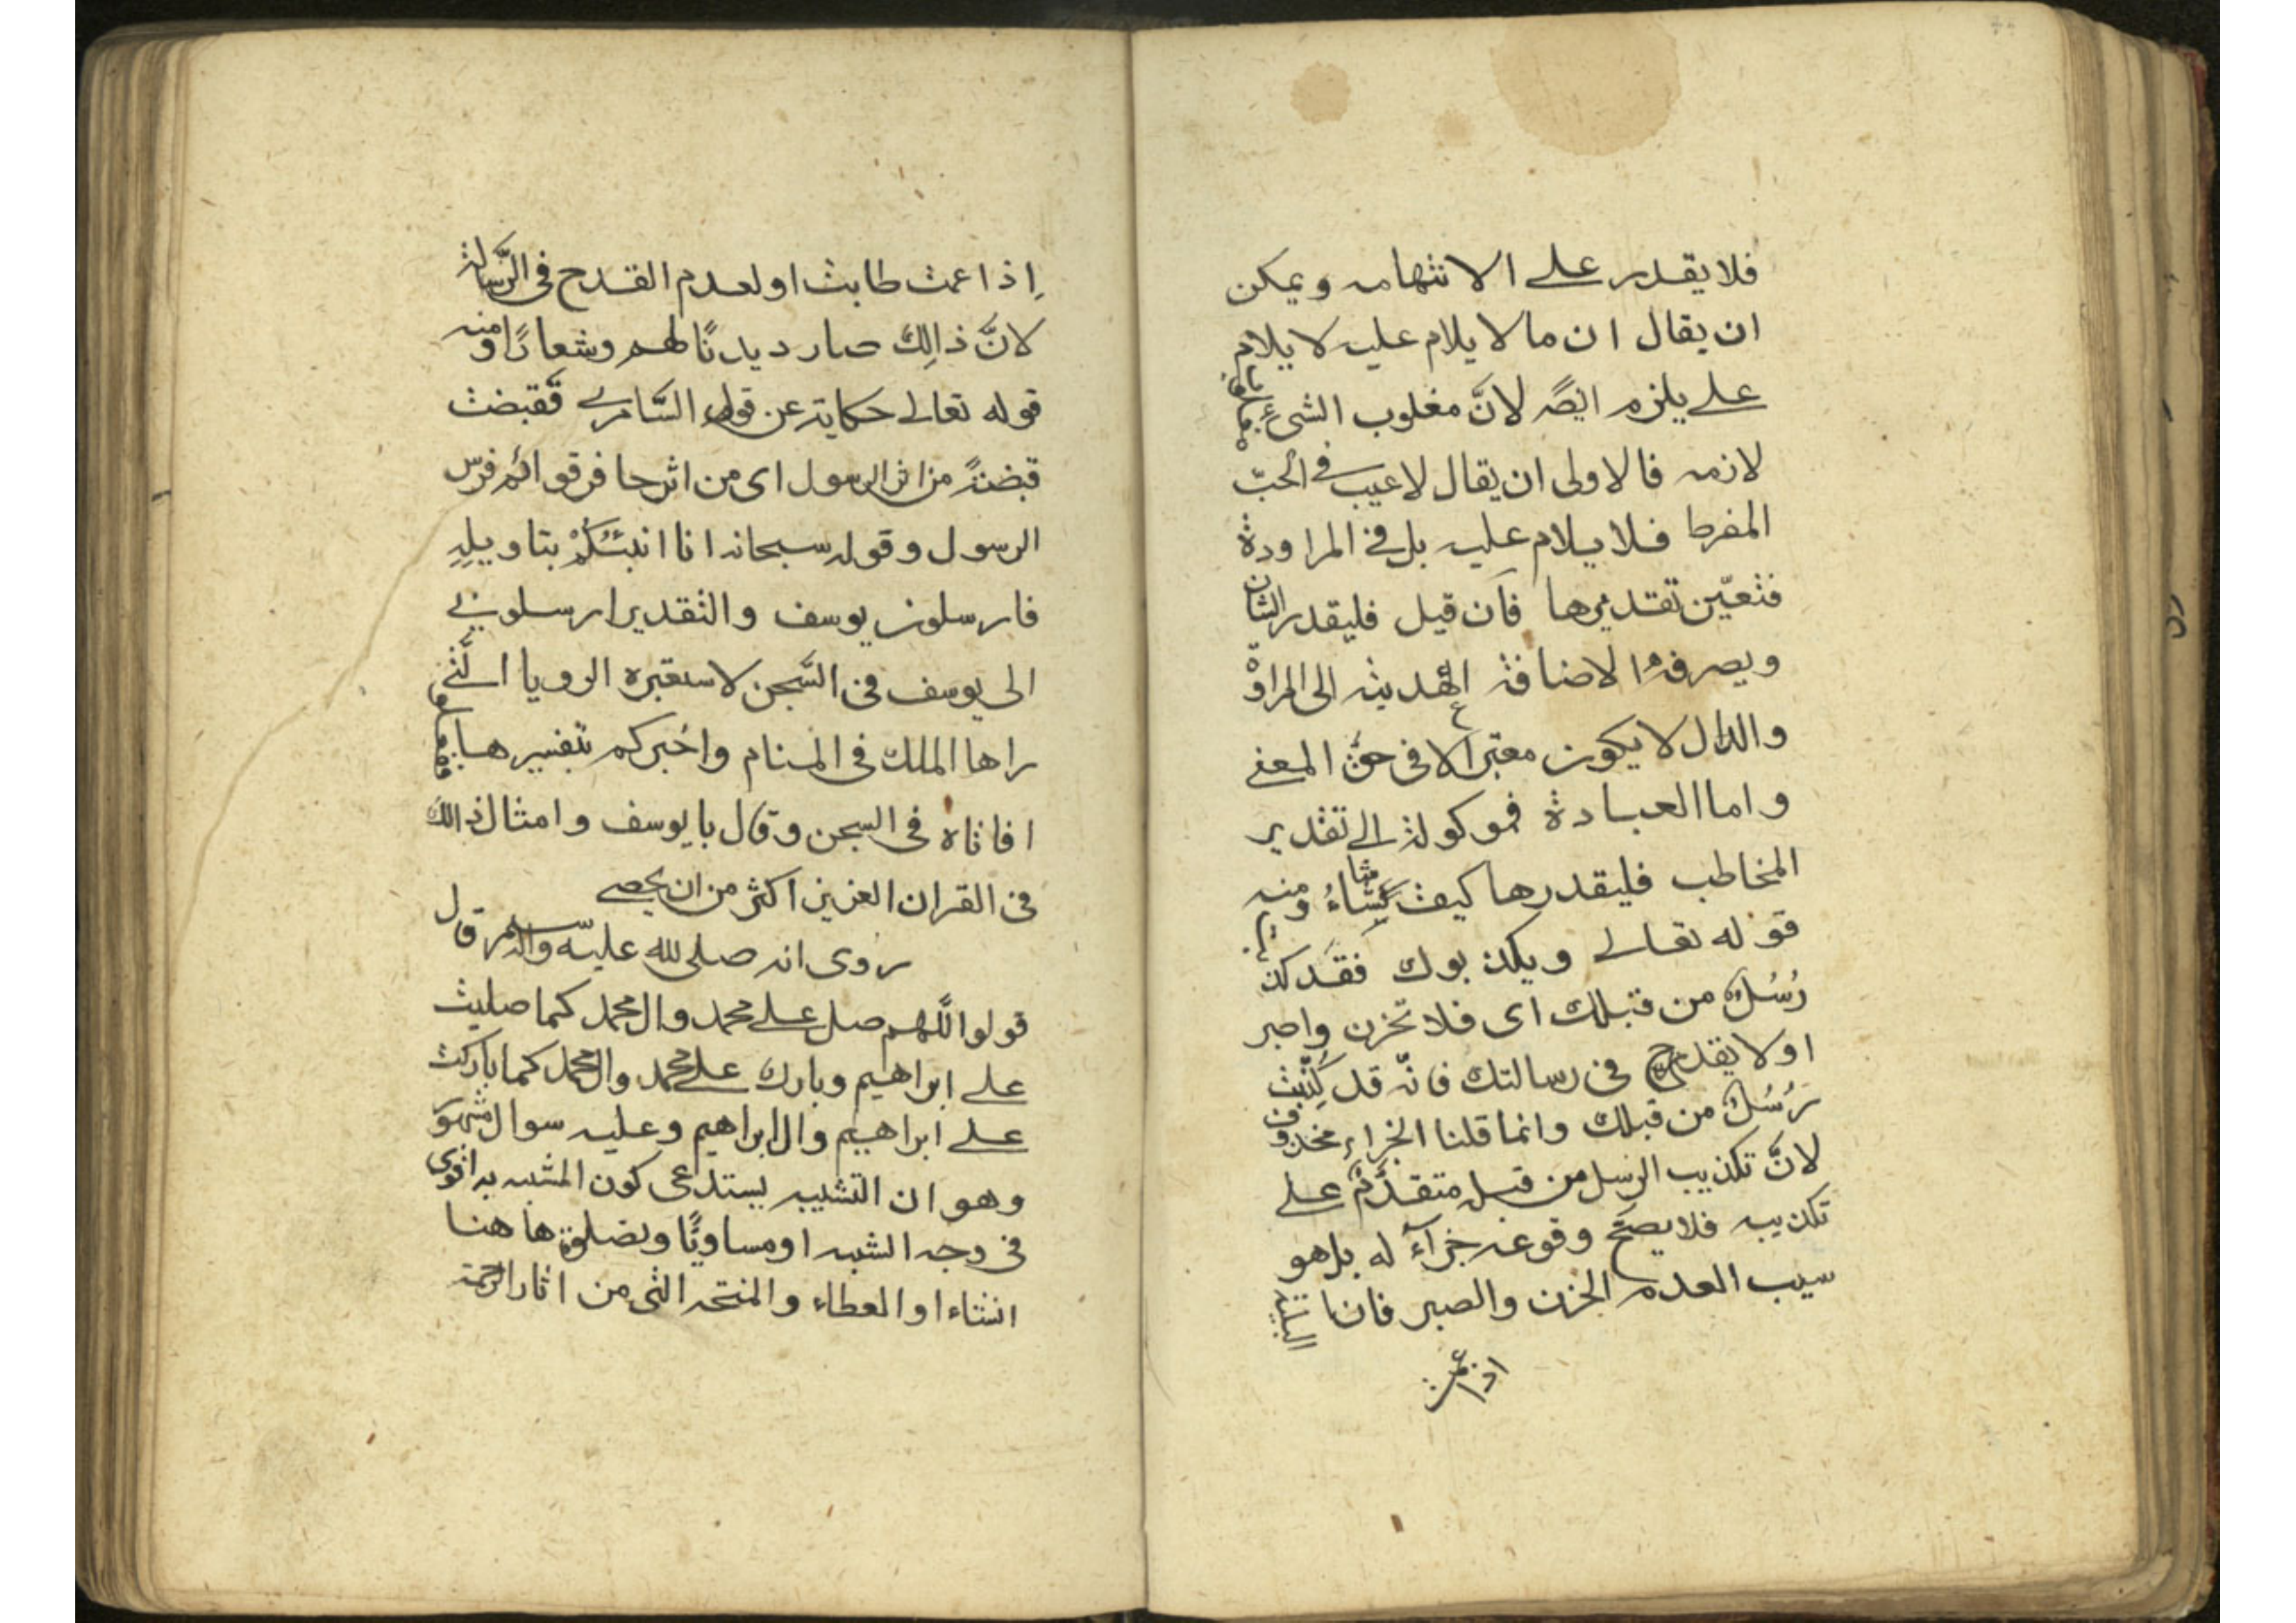 فلا يقدر على الانتهامه ويمكن
ان يقال ان ما لا يلام عليه لا يلام
على يلزم ايضً لانَّ مغلوب الشئ
لازمه فالاولى ان يقال لا عيب فى الحبّ
المفرط فلا يلام عليه بل فى المراودة
فتعيّن تقديرها فان قيل فليقدر الشان
ويصرفه الاضافة الى المراة
والدال لا يكون معتبرا الا فى حق المعنى
واما العبادة فموكولة الى تقدير
المخاطب فليقدرها كيف يشاءُ ومنه
قوله تعالى ويكذبوك فقد كذبت
رُسُلٌ من قبلك اى فلا تحزن واصبر
اولا يقدح فى رسالتك فانّه قد كُذِّبت
رُسُلٌ من قبلك وانما قلنا الجزاء محذوف
لانَّ تكذيب الرسل من قبله متقدّم على
تكذيبه فلا يصحّ وقوعه جزآءً له بل هو
سبب العدم الحزن والصبر فان البلية
اذا عمت
اِذا عمت طابت او لعدم القدح فى الرّسالة
لانَّ ذالِك صار ديدنًا لهم وشعارًا ومنه
قوله تعالى حكاية عن قول السّامرى فقبضت
قبضةً من اثر الرسول اى من اثر حافر قوائم فرس
الرسول وقوله سبحانه انا انبئكُمْ بتاويلِهِ
فارسلون يوسف والتقدير ارسلونى
الى يوسف فى السّجن لاستعبره الرويا الّتى
راها الملك فى المنام واخبركم بتفسيرها
فاتاه فى السجن وقال يا يوسف وامثال ذالك
فى القران العزيز اكثر من ان يحصى
روى انه صلى الله عليه واله وسلم قال
قولوا اللّهم صل على محمد وال محمد كما صليت
على ابراهيم وبارك على محمد وال محمد كما باركت
على ابراهيم وال ابراهيم وعليه سوال مشهور
وهو ان التشبيه يستدعى كون المشبه به اقوى
فى وجه الشبه او مساويًا و ها هنا
انشاء او العطاء والمنحة التى من اثار الرحمة